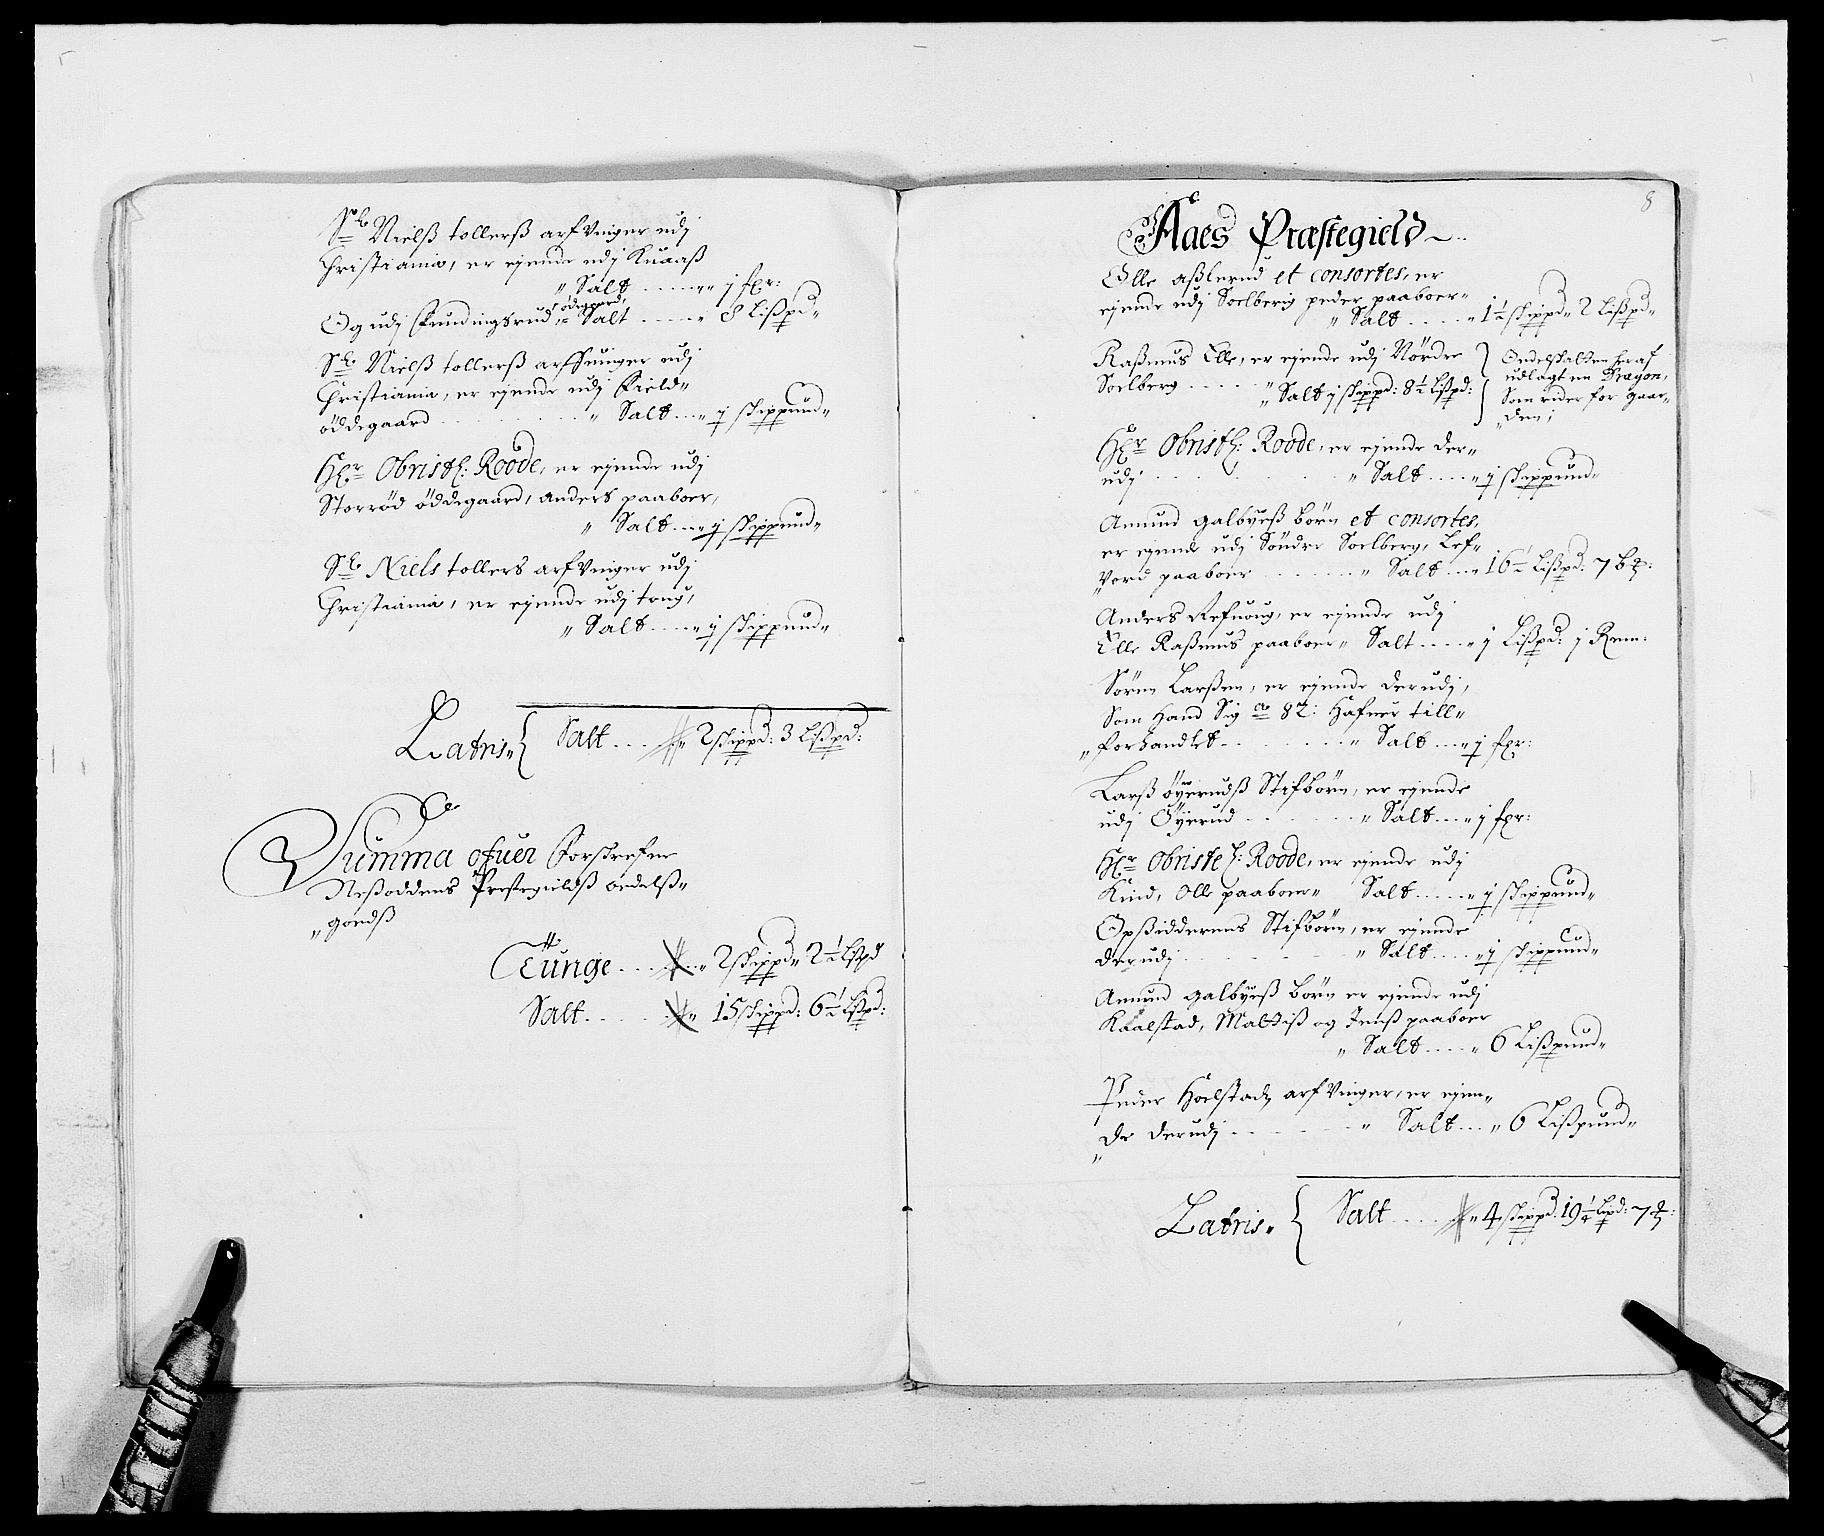 Sl Nielß tollerß arfVinger udj
Christiania, er ejende udj Knaaß
" Salt ...... " j fxr:
ödegaard,
Og udj Fundingsrud Salt ..... " 8 Lißpd"
Sl Nielß tollerß arffuinger udj
Christiania, er ejende udj Field"
öddegaard ........ " Salt ... " j skippund"
Hr Obristl: Roode, er ejende udj
Storröd öddegaard, Anders paaboer,
" Salt ... " j skippund"
Sl Niels tollers arfVinger udj
Christiania, er ejende udj toug,
" Salt .... " j skippund"
Latris" { Salt .... " 2 skippd: 3 Lißpd:
Summa ofuer Forskrefne
Neßoddens Prestegieldß oedelß"
" goedß
Tunge ....... " 2 skippd" 2 1/2 Lßpd
Salt ....... " 15 skippd: 6 1/2 Lßpd:
8
Aaes Præstegield
Olle aßlerud et consortes, er
ejende udj Soelberig peder paaboer"
" Salt ..... " 1 1/2 skippd" 2 Lißpd"
Raßmus Elle, er ejende udj Nördre
Soelberg ..... " Salt j skippd: 8 1/2 Lßpd:
Oedelskatten heraf
udlagt en Dragon,
Som rider for gaar"
" den;
Hr Obristl: Roode, er ejende der"
udj ........ " Salt .... " j skippund"
Amund galbyeß börn et consortes,
er ejende udj Söndre Soelberg, Lef"
" Vord paaboer ...... " Salt ... " 16 1/2 Lißpd: 7 b
Anders Refuoug, er ejende udj
Elle Raßmus paaboer" Salt ..... " j Lißpd: j Rem:
Sören Larßen, er ejende derudj,
Som hand Sig ao 82: hafuer till"
" forhandlet ....... " Salt ... " j fxr:
Larß öyerudß Stifbörn, er ejende
udj Öyerud ...... " Salt ... " j fxr:
Hr Obriste l: Roode, er ejende udj
Kind, Olle paaboer" Salt ..... " j skippund"
Opsidderens Stifbörn, er ejende
derudj ....... " Salt .... " j skippund"
Amund galbyeß börn er ejende udj
Kaalstad, Mattiß og Jenß paaboer
" Salt .... " 6 Lißpund"
Peder hoelstadz arfVinger, er ejen"
" de derudj ....... " Salt ... " 6 Lißpund"
Latris" { Salt .... " 4 skippd: 19 1/4 Lpd: 7